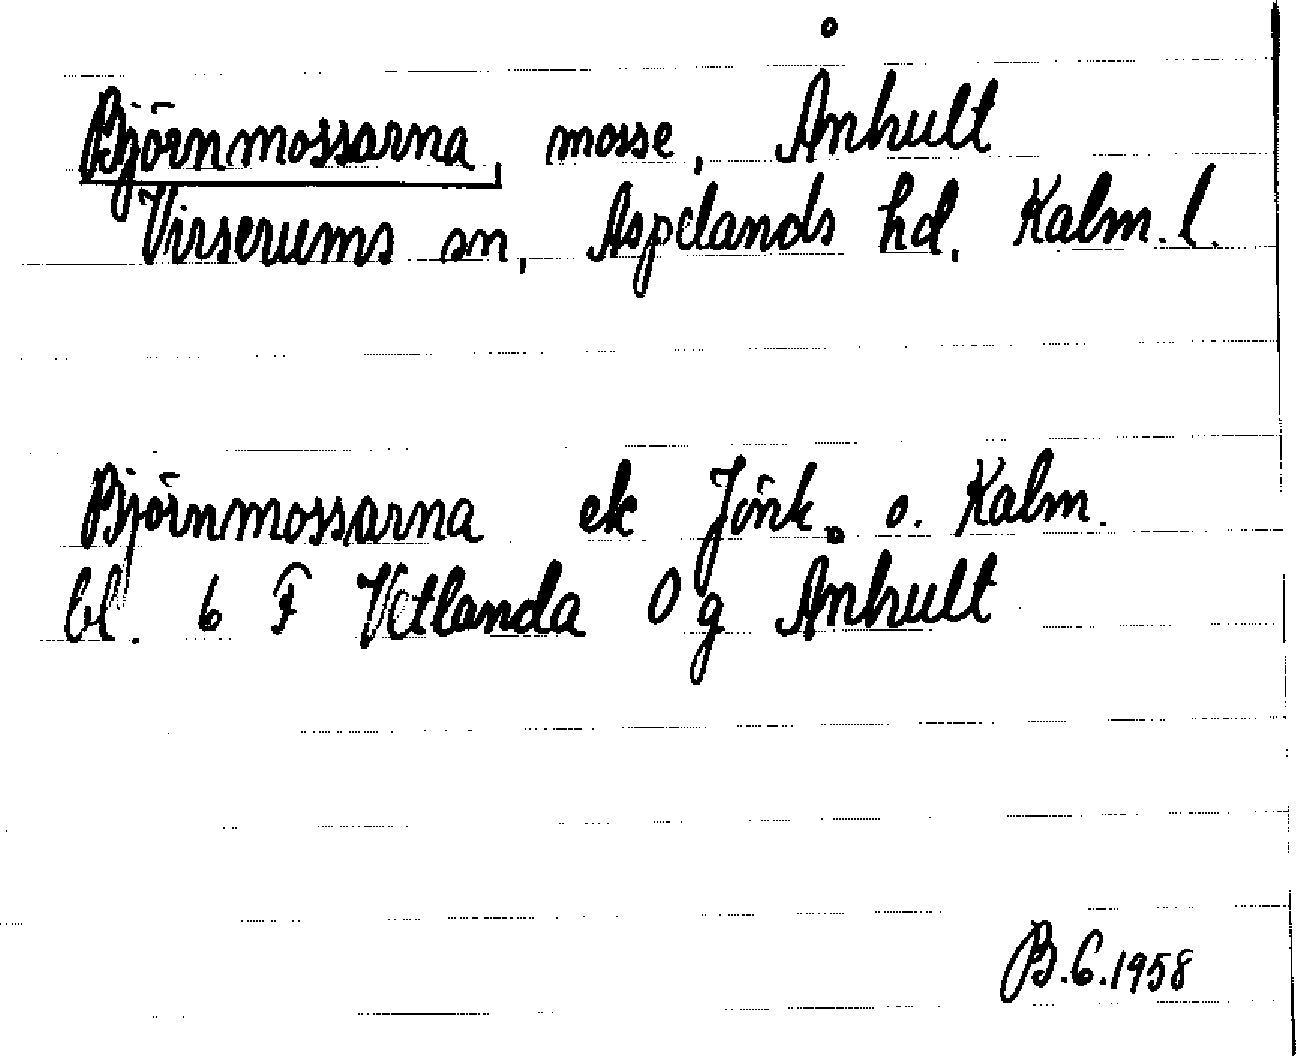 Björnmossarna, mosse, Ånhult
Virserums sn, Aspelands hd. Kalm. l.
Björnmossarna ek Jönk. o. Kalm.
bl. 6 F Vetlanda 0 g Ånhult
B.G.1958